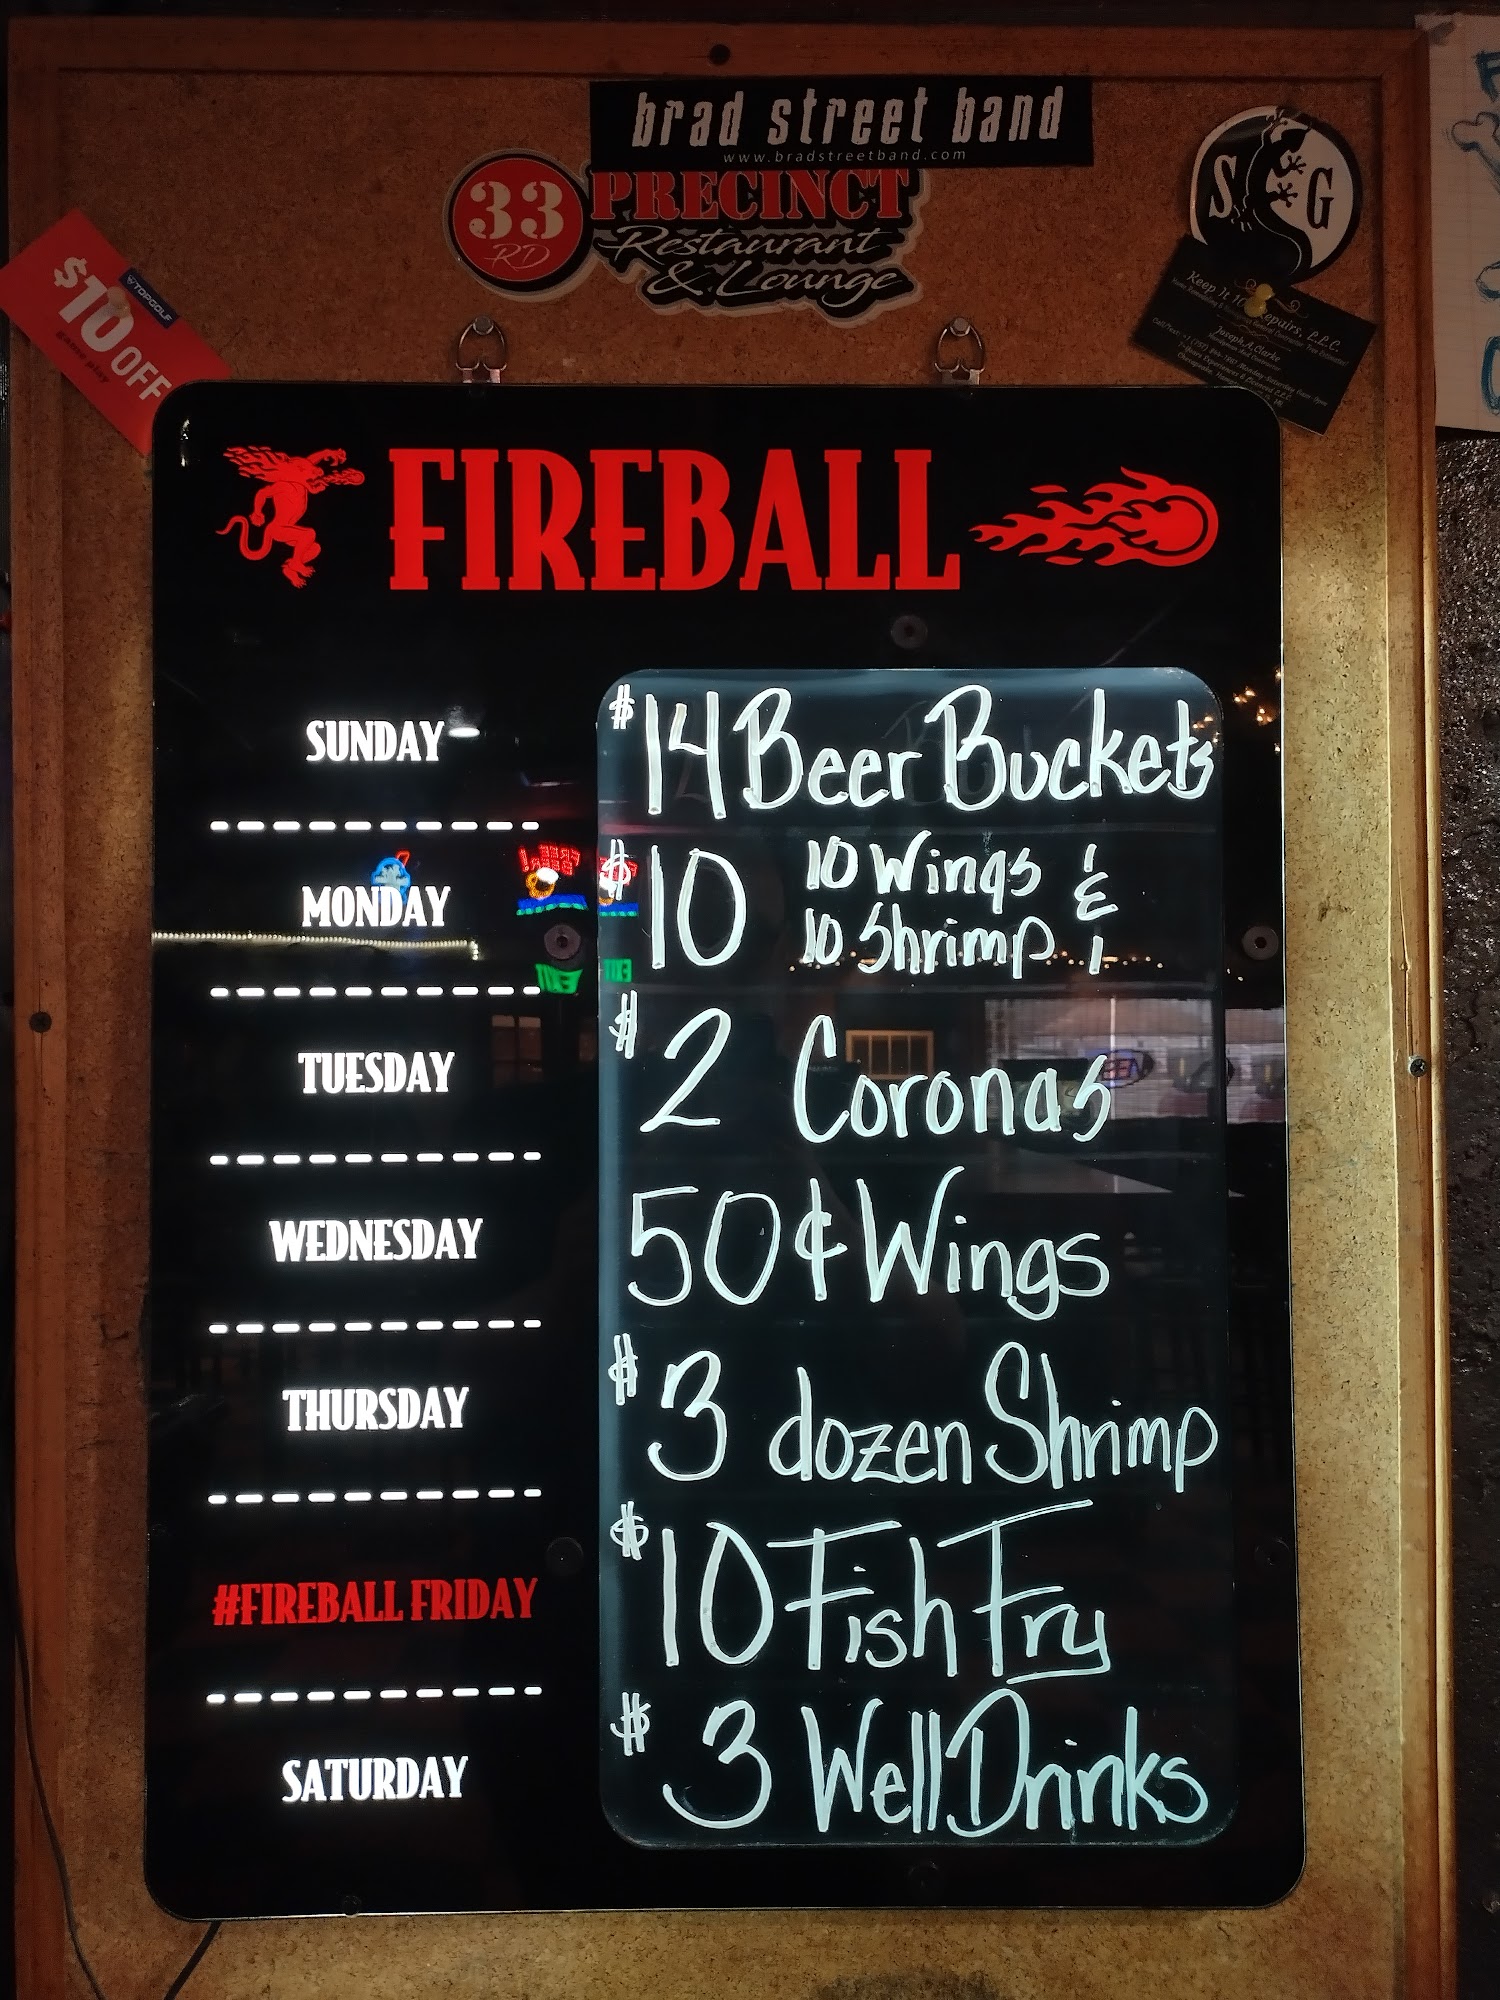 brad street band
www.bradstreetband.com
33 PRECINCT
RD Restaurant
& Lounge
S G
$10 OFF
game play
TOPGOLF
Keep It 100 Repairs, L.L.C.
Joseph A. Clarke
FIREBALL
SUNDAY $14 Beer Buckets
MONDAY $10 10 Wings &
10 Shrimp
TUESDAY $2 Coronas
WEDNESDAY 50¢ Wings
THURSDAY $3 dozen Shrimp
#FIREBALL FRIDAY $10 Fish Fry
SATURDAY $3 Well Drinks